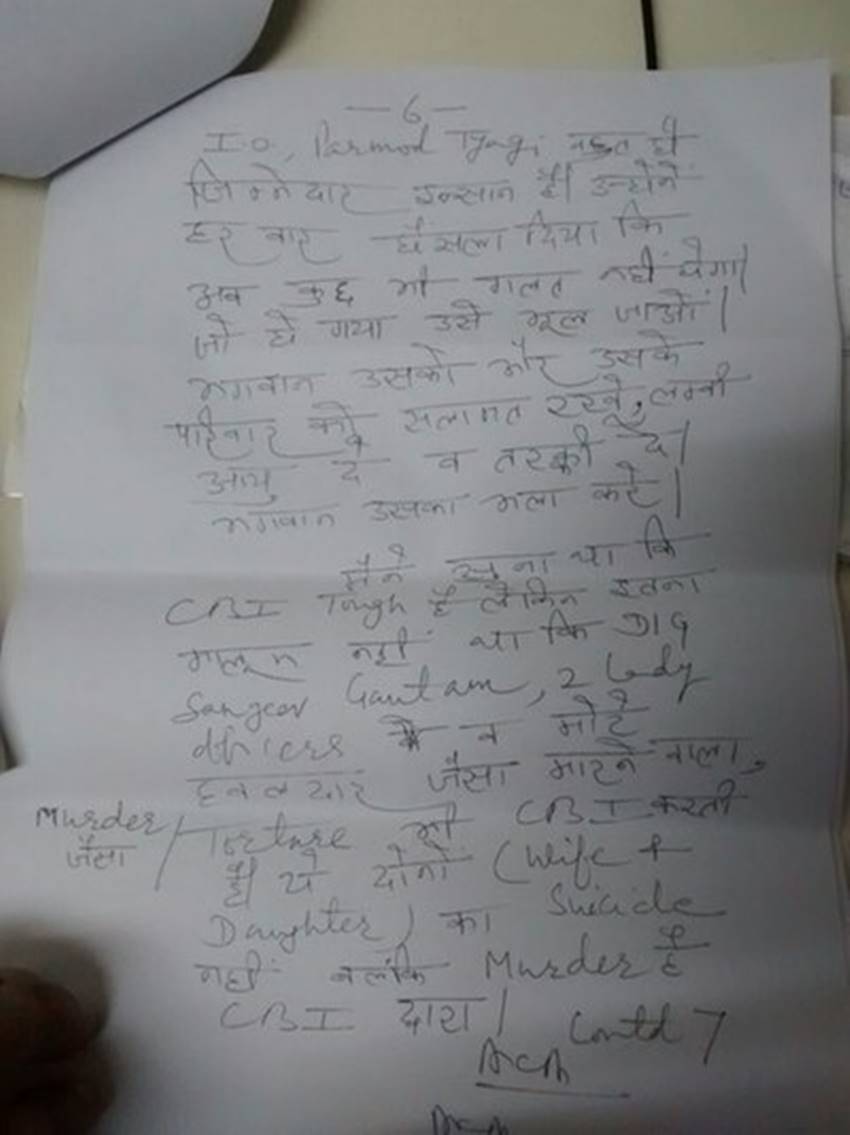 — 6 —
I.O. Parmod Tyagi बहुत ही
जिम्मेदार इन्सान है। उन्होनें
हर बार हौसला दिया कि
अब कुछ भी गलत नहीं होगा।
जो हो गया उसे भूल जाओं।
भगवान उसको और उसके
परिवार को सलामत रखे, लम्बी
आयु दे व तरक्की दे।
भगवान उसका भला करे।
मैने सुना था कि
CBI Tough है लेकिन इतना
मालूम नहीं था कि DIG
Sanjeev Gautam, 2 Lady
officers व मोटे
हवलदार जैसा मारने वाला,
Murder जैसा / Torture भी CBI करती
है। ये दोनों (Wife &
Daughter) का Suicide
नहीं बलकि Murder है
CBI द्वारा।
Contd 7